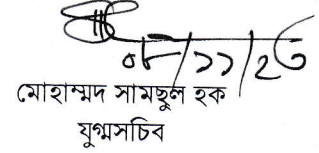 ০৮/১১/২৩
মোহাম্মদ সামছুল হক
যুগ্মসচিব